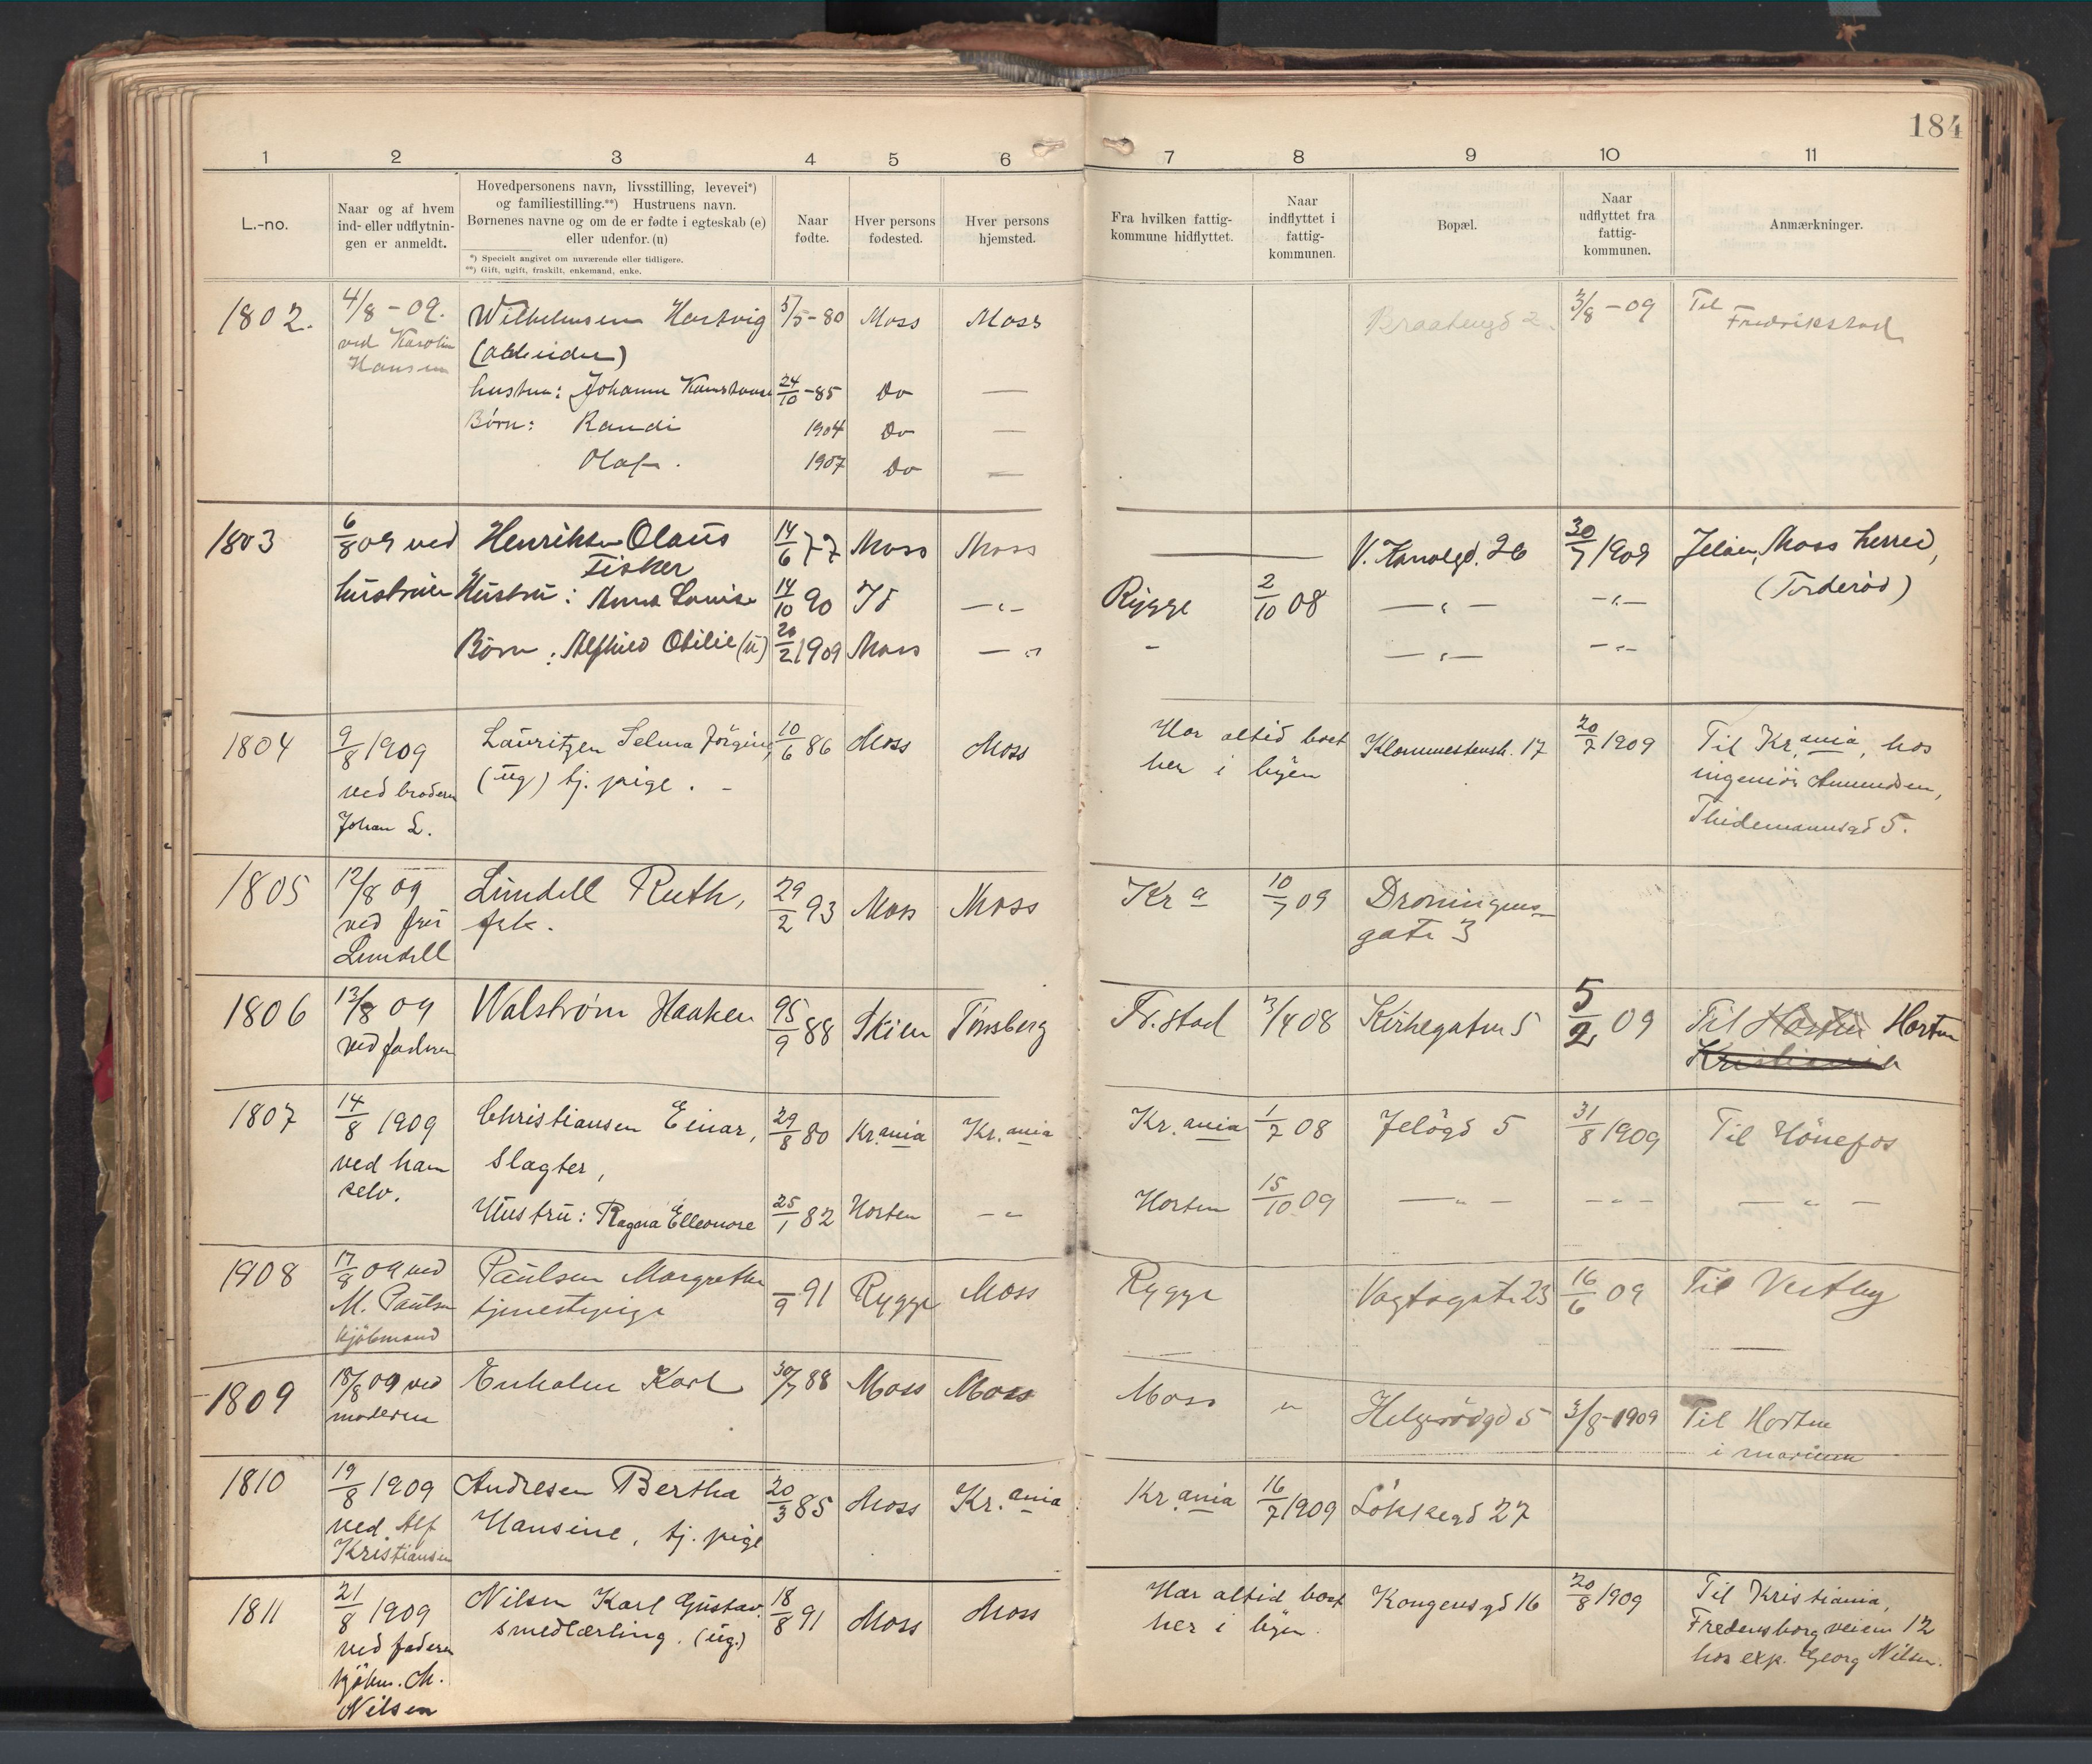 184
1 2 3 4 5 6 7 8 9 10 11
L.-no.
Naar og af hvem
ind- eller udflytnin-
gen er anmeldt.
Hovedpersonens navn, livsstilling, levevei*)
og familiestilling.**) Hustruens navn.
Børnenes navne og om de er fødte i egteskab (e)
eller udenfor. (u)
*) Specielt angivet om nuværende eller tidligere.
**) Gift, ugift, fraskilt, enkemand, enke.
Naar
fødte.
Hver persons
fødested.
Hver persons
hjemsted.
Fra hvilken fattig-
kommune hidflyttet.
Naar
indflyttet i
fattig-
kommunen.
Bopæl.
Naar
udflyttet fra
fattig-
kommunen.
Anmærkninger.
1802. 4/8 - 09. Wilhelmsen Hartvig 5/5-80 Moss Moss Braatengd 2. 3/8-09 Til
ved Karolin (arbeider) Fredrikstad
Hansen
hustru: Johanne 24/10-85 Do —
Børn: Randi 1904 Do —
Olaf. 1907 Do —
1803 6/8 09 ved Henriksen Olaus 14/6 77 Moss Moss — V. Kanalgd. 26 30/7 1909 Jeløen, Moss herred,
Fisker
hustruen Hustru: Anna Lovise 14/10 90 Id —„— Rygge 2/10 08 —„— —„— (Torderød)
Børn: Alfhild Otilie (u) 20/2 1909 Moss —„ - —„— —„—
1804 9/8 1909 Lauritzen Selma Jörgine, 10/6 86 Moss Moss Har altid boet Klommestensh. 17 20/7 1909 Til Kr.ania, hos
ved broderen (ug) tj. pige. - her i byen ingeniör Amundsen,
Johan L. Thidemannsgd 5.
1805 12/8 09 Lundell Ruth, 29/2 93 Moss Moss Kr a 10/7 09 Dronningens-
ved fru frk. gate 3
Lundell
1806 13/8 09 Walstrøm Haaken 25/9 88 Skien Tønsberg Fr.stad 3/4 08 Kirkegaten 5 5/2 09 Til Horten Horten
ved faderen Kristiania
1807 14/8 1909 Christiansen Einar, 29/8 80 Kr.ania Kr.ania Kr.ania 1/7 08 Jelögd 5 31/8 1909 Til Hönefos
ved ham Slagter,
selv.
Hustru: Ragna Elleonore 25/1 82 Horten —„ Horten 15/10 09 —„— —„— —„—
1908 17/8 09 ved Paulsen Margrethe /9 91 Rygge Moss Rygge Vogtsgate 23 16/6 09 Til Vestby
M. Paulsen tjenestepige
kjöbmand
1809 18/8 09 ved Enholm Karl 30/7 88 Moss Moss Moss „ Helgerödgd 5 3/8-1909 Til Horten
moderen i marinen
1810 19/8 1909 Andresen Bertha 20/3 85 Moss Kr.ania Kr.ania 16/7 1909 Lökkegd 27
ved Alf Hansine, tj. pige
Kristiansen
1811 21/8 1909 Nilsen Karl Gustav. 18/8 91 Moss Moss Har altid boet Kongensgd 16 20/8 1909 Til Kristiania,
ved faderen smedlærling. (ug.) her i byen. Fredensborgveien 12
kjöbm. M. hos exp. Georg Nilsen.
Nilsen